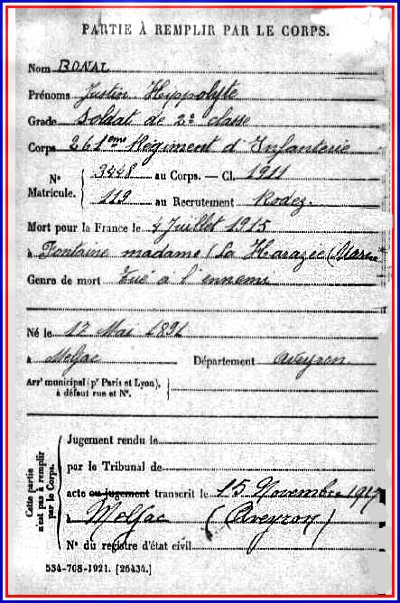 PARTIE À REMPLIR PAR LE CORPS.
Nom BONAL
Prénoms Justin Hyppolyte
Grade Soldat de 2e classe
Corps 261eme Régiment d'Infanterie
N° 3448 au Corps. — Cl. 1911
Matricule. 119 au Recrutement Rodez.
Mort pour la France le 4 Juillet 1915
à Fontaine madame (La Harazée (Marne
Genre de mort Tué à l'ennemi
Né le 12 Mai 1891
à Meljac Département Aveyron.
Arrt municipal (pr Paris et Lyon),
à défaut rue et N°.
Cette partie
n'est pas à remplir
par le Corps.
Jugement rendu le
par le Tribunal de
acte ou jugement transcrit le 15 Novembre 1917
à Meljac (Aveyron)
N° du registre d'état civil
534-708-1921. [26434.]